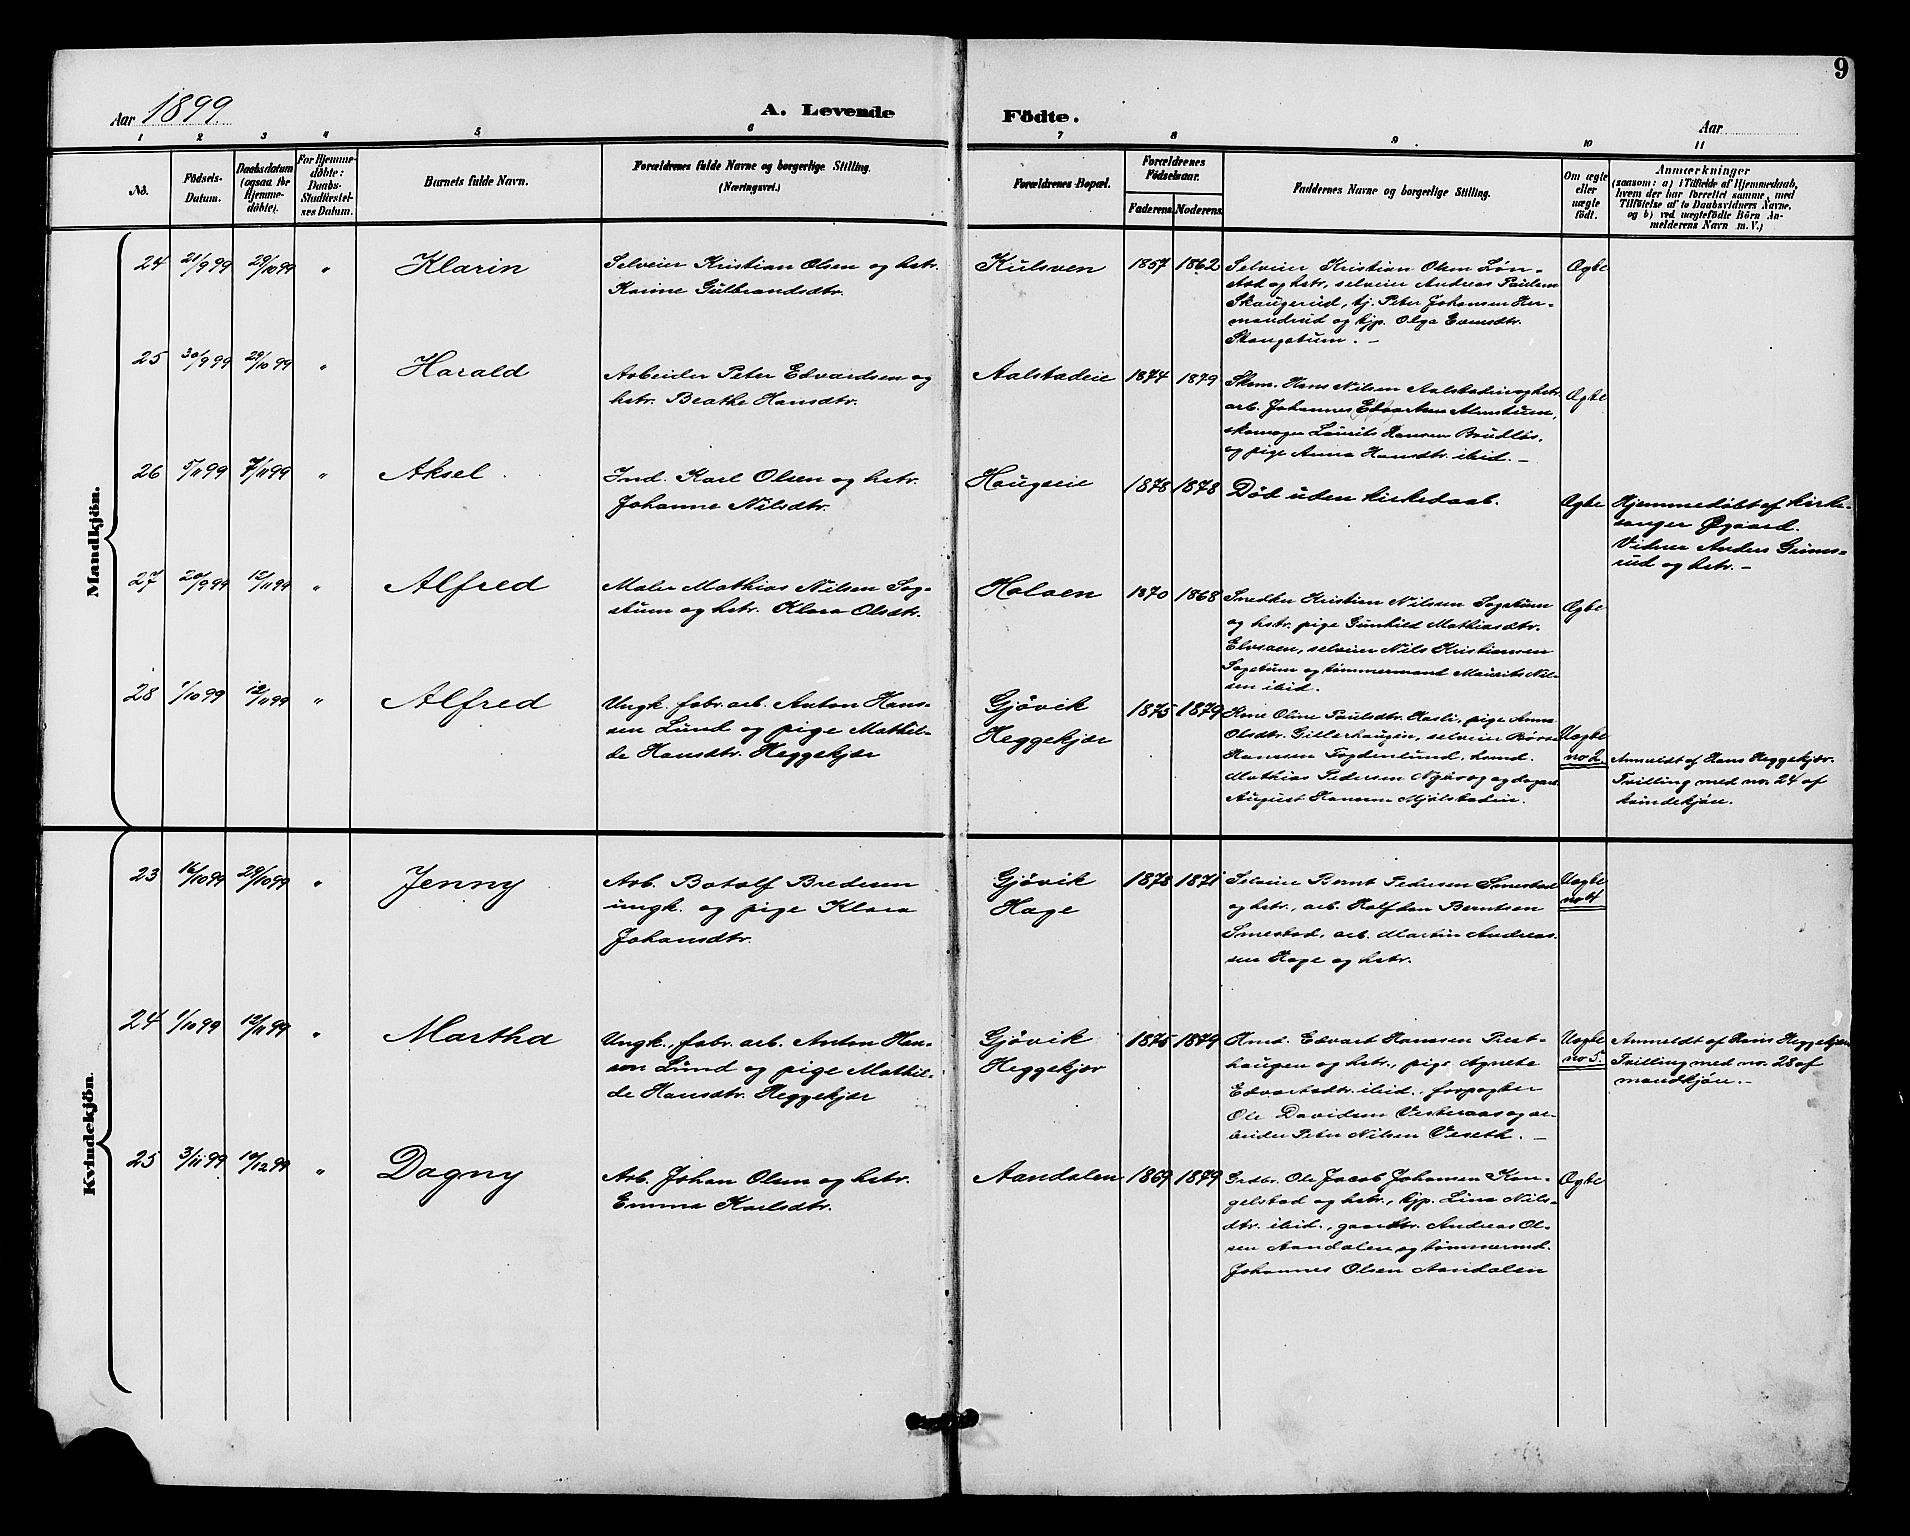 9
Aar 1899.
A. Levende
Födte.
Aar
1 2 3 4 5 6 7 8 9 10 11
No.
Födsels-
Datum.
Daabsdatum
(ogsaa for
Hjemme-
døbte).
For Hjemme-
døbte:
Daabs-
Stadfæstel-
ses Datum.
Barnets fulde Navn.
Forældrenes fulde Navne og borgerlige Stilling.
(Næringsvei.)
Forældrenes Bopæl.
Forældrenes
Fødselsaar.
Faderens.
Moderens.
Faddernes Navne og borgerlige Stilling.
Om ægte
eller
uægte
født.
Anmærkninger
(saasom: a) i Tilfælde af Hjemmedaab,
hvem der har forrettet samme, med
Tilføielse af to Daabsvidners Navne.
og b) ved uægtefødte Børn An-
melderens Navn m. V.)
Mandkjön.
24 21/9 99 29/10 99 " Klarin
Selveier Kristian Olsen og hstr.
Karine Gulbrandsdtr.
Kulsven 1857 1862
Selveier Kristian Olsen Løn-
stad og hstr, selveier Andreas Paulsen
Skaugerud, tj. Peter Johansen Her-
mandrud og tjp. Olga Evensdtr.
Skaugstum. -
Ægte
25 30/9 99 29/10 99 " Harald
Arbeider Peter Edvardsen og
hstr. Beathe Hansdtr.
Aalstadeie 1874 1879
Skom. Hans Nilsen Aalstadeie og hstr.
arb. Johannes Edvartsen Alm
skomager Laurits Hansen
og pige Anna Hansdtr. ibid. -
Ægte
26 5/11 99 7/11 99 " Aksel.
Ind. Karl Olsen og hstr.
Johanne Nilsdtr.
Haugseie 1878 1878
Død uden kirkedaab.
Ægte
Hjemmedøbt af kirke-
sanger Øgaard.
Vidner Anders Grims-
rud og hstr. -
27 20/9 99 12/11 99 " Alfred
Maler Mathias Nilsen Sog-
stum og hstr. Klara Olsdtr.
Holven 1870 1868
Snedker Kristian Nilsen Sogstum
og hstr. pige Gunhild Mathiasdtr.
Elvsven, selveier Nils Kristiansen
Sogstum og tømmermand Maurits Nil-
sen ibid.
Ægte
28 1/10 99 12/11 99 " Alfred
Ungk. fabr. arb. Anton Han-
sen Lund og pige Mathil-
de Hansdtr. Heggekjær
Gjøvik
Heggekjær
1875 1879
Kone Oline Paulsdtr. Hasli, pige Anna
Olsdtr. Gillerhaugen, selveier
Hanssen Fogdenlund,
Mathias Pedersen og
August Hansen Mjølstadeie.
Uægte
no 2.
Anmeldt af Hans Heggekjær.
Tvilling med no. 24 af
kvindekjøn.
Kvindekjön.
23 16/10 99 29/10 99 " Jenny
Arb. Botolf Bredesen
ungk. og pige Klara
Johansdtr.
Gjøvik
Hage
1878 1871
Selveier Bernt Pedersen Smestad
og hstr., arb. Halfdan Berntsen
Smestad, arb. Martin Andreas-
sen Hage og hstr.
Uægte
no 4
24 1/10 99 12/11 99 " Martha
Ungk., fabr. arb. Anton Han-
sen Lund og pige Mathil-
de Hansdtr. Heggekjær
Gjøvik
Heggekjær
1875 1879
Hmd. Edvart Hanssen Prest-
haugen og hstr., pige Agnete
Edvartsdtr. ibid., forpagter
Ole Davidsen Vesteraas og ar-
beider Peter Nilsen Veseth. -
Uægte
no 5.
Anmeldt af Hans Heggekjær
Tvilling med no. 28 af
mandkjøn. -
25 3/11 99 10/12 99 " Dagny
Arb. Johan Olsen og hstr.
Emma Karlsdtr.
Aandalen 1869 1879
Grdbr. Ole Jacob Johansen Kon-
gelstad og hstr., tjp. Lina Nils-
dtr. ibid., gaardbr. Andreas Ol-
sen Aandalen og tømmermd.
Johannes Olsen Aandalen
Ægte